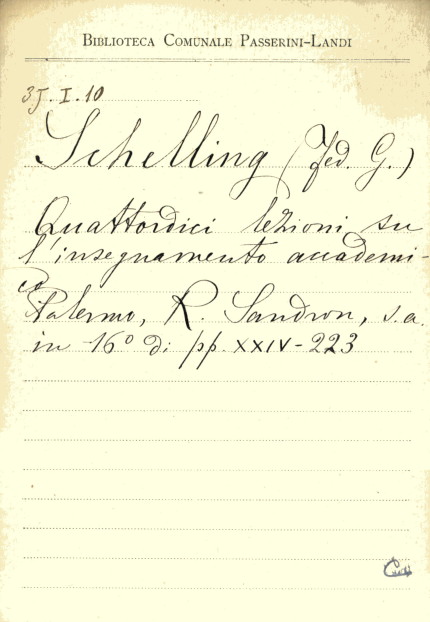 BIBLIOTECA COMUNALE PASSERINI-LANDI
3J.I.10
Schelling (Fed. G.)
Quattordici lezioni su
l'insegnamento accademi-
co
Palermo, R. Sandron, s.a.
in 16° di pp. XXIV-223